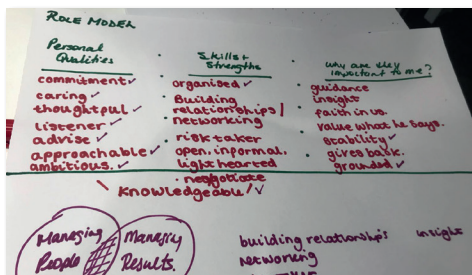 ROLE MODEL
Personal Qualities
commitment ✓
caring ✓
thoughtful ✓
listener ✓
advise ✓
approachable ✓
ambitious. ✓
Skills+
Strengths
• organised ✓
• Building
relationships /
networking
• risk taker
open, informal,
light hearted
• negotiate
Why are they
important to me?
guidance
insight
faith in us.
value what he says.
stability ✓
gives back.
grounded ✓
Knowledgeable ✓
Managing
People
Managing
Results.
building relationships insight
Networking